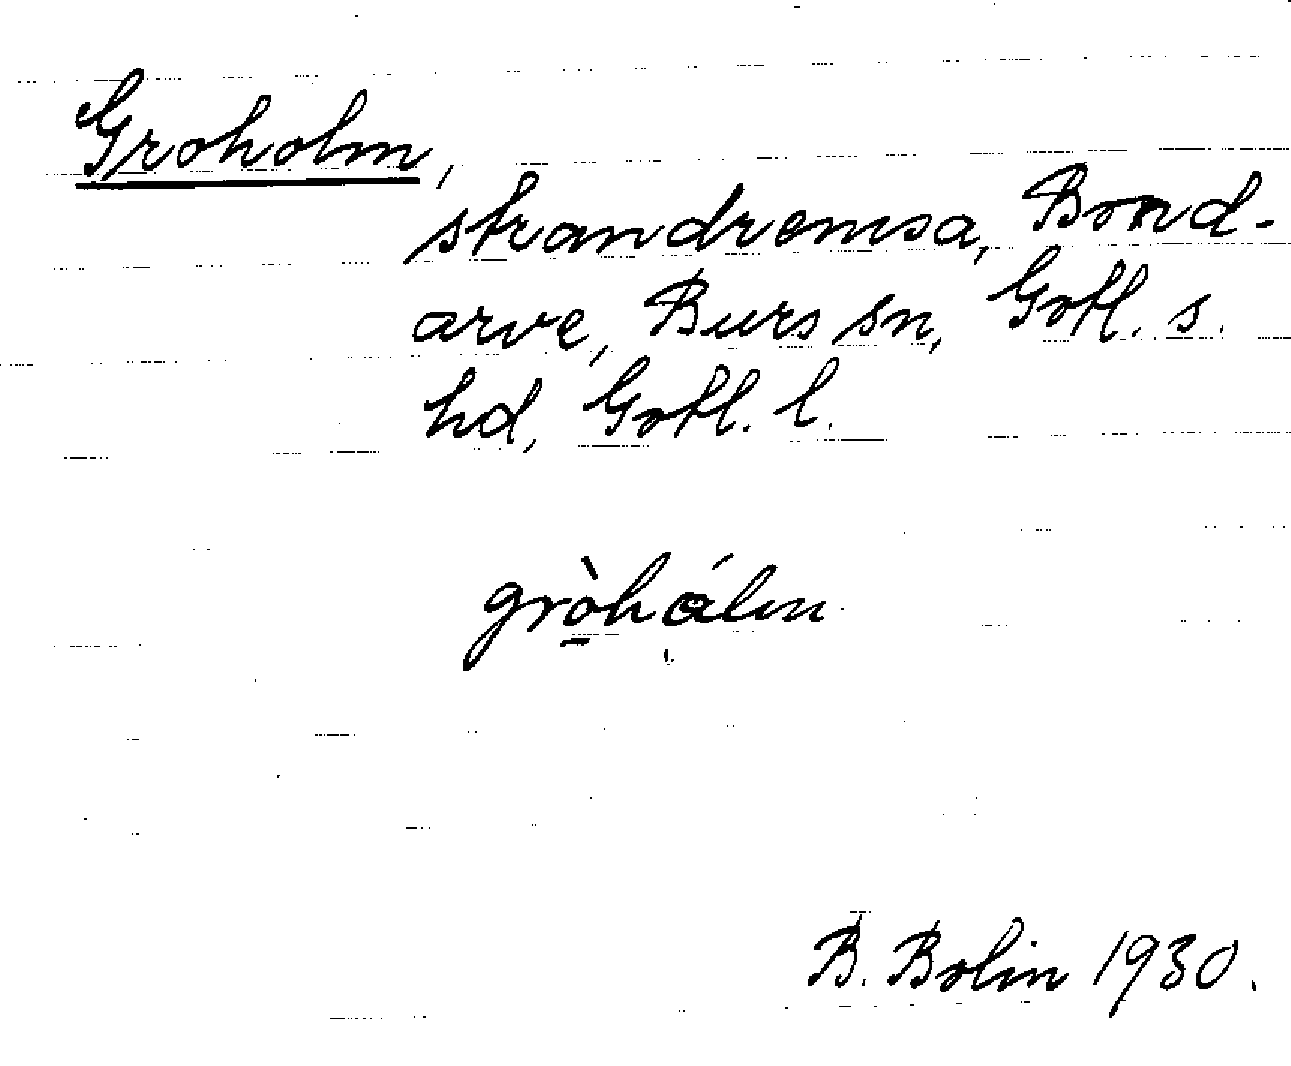 Groholm,
strandremsa, Bond-
arve, Burs sn, Gotl. s.
hd, Gotl. l.
grò̲hålm
B. Bolin 1930.